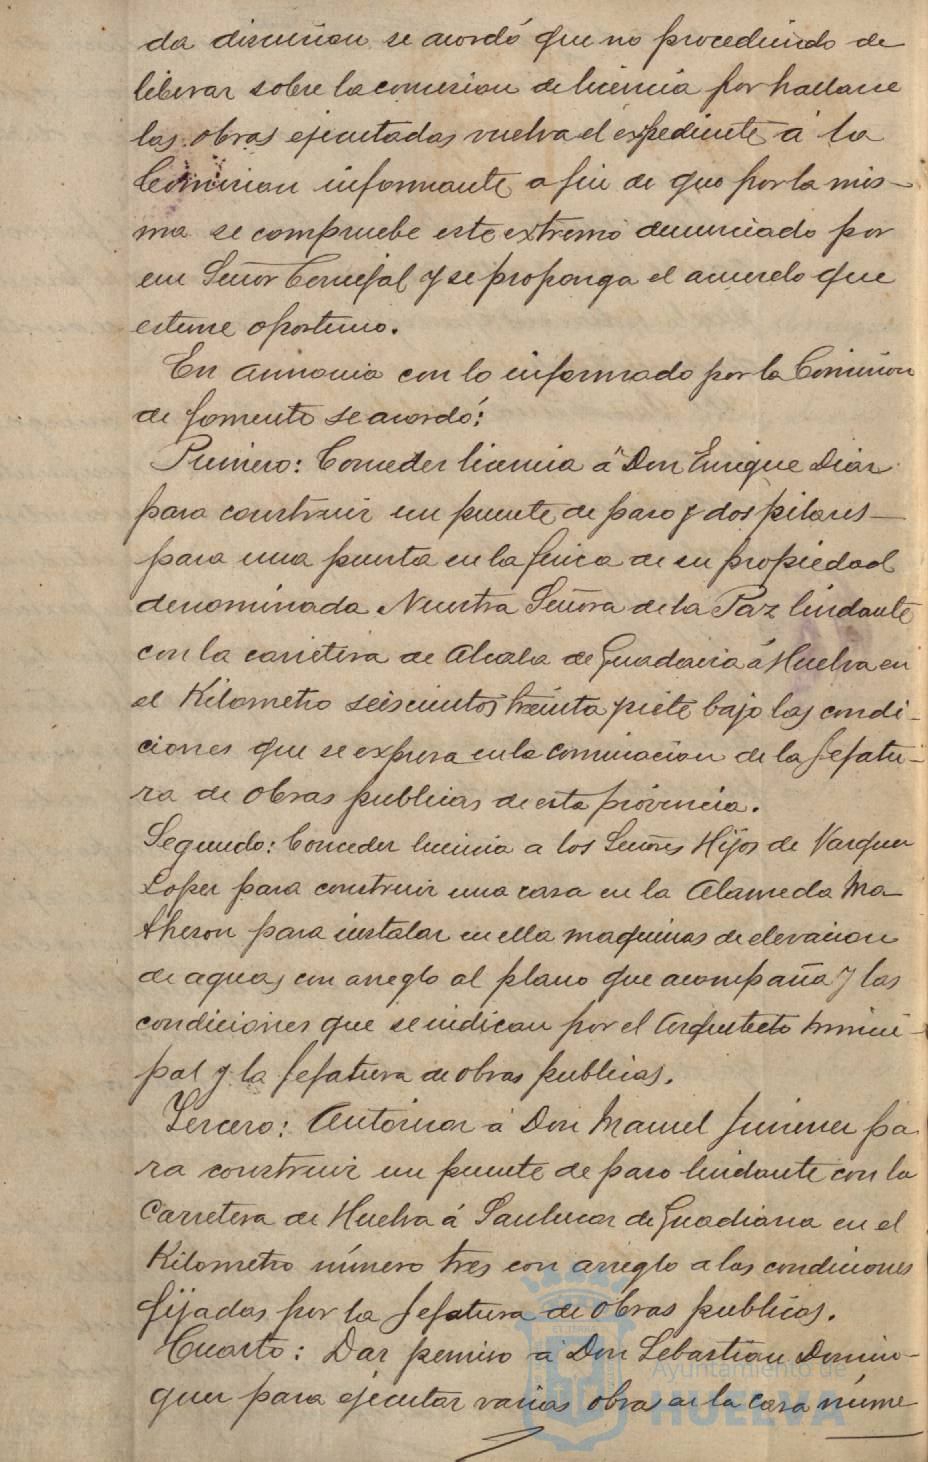 da discusion se acordó que no procediendo de
liberar sobre la concesion de licencia por hallarse
las obras ejecutadas vuelva el expediente á la
Comision informante a fin de que por la mis-
ma se compruebe este extremo denunciado por
un Señor Concejal y se proponga el acuerdo que
estime oportuno.
En armonia con lo informado por la Comision
de fomento se acordó:
Primero: Conceder licencia á Don Enrique Diaz
para construir un puente de paso y dos pilares
para una puerta en la finca de su propiedad
denominada Nuestra Señora de la Paz lindante
con la carretera de Alcala de Guadaira á Huelva en
el Kilometro seiscientos treinta y siete bajo las condi-
ciones que se expresa en la comunicacion de la Jefatu-
ra de obras publicas de esta provincia.
Segundo: Conceder licencia a los Señores Hijos de Vazquez
Lopez para construir una casa en la Alameda Ma-
theson para instalar en ella maquinas de elevacion
de aguas con arreglo al plano que acompaña y las
condiciones que se indican por el Arquitecto munici-
pal y la Jefatura de obras publicas.
Tercero: Autorizar á Don Manuel Jimenez pa
ra construir un puente de paso lindante con la
Carretera de Huelva á Sanlucar de Guadiana en el
Kilometro número tres con arreglo a las condiciones
fijadas por la Jefatura de obras publicas.
Cuarto: Dar permiso á Don Sebastian Domin-
guez para ejecutar varias obras en la casa núme
Ayuntamiento de
HUELVA